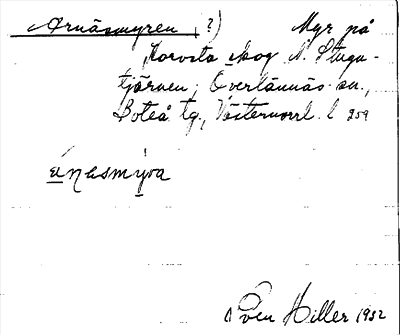 Arnäsmyren (?) Myr på
Korsta skog N. Stugu-
tjärnen, Överlännäs sn.,
Boteå tg., Västernorrl. l 259
ánasmýra
Sven Hiller 1932